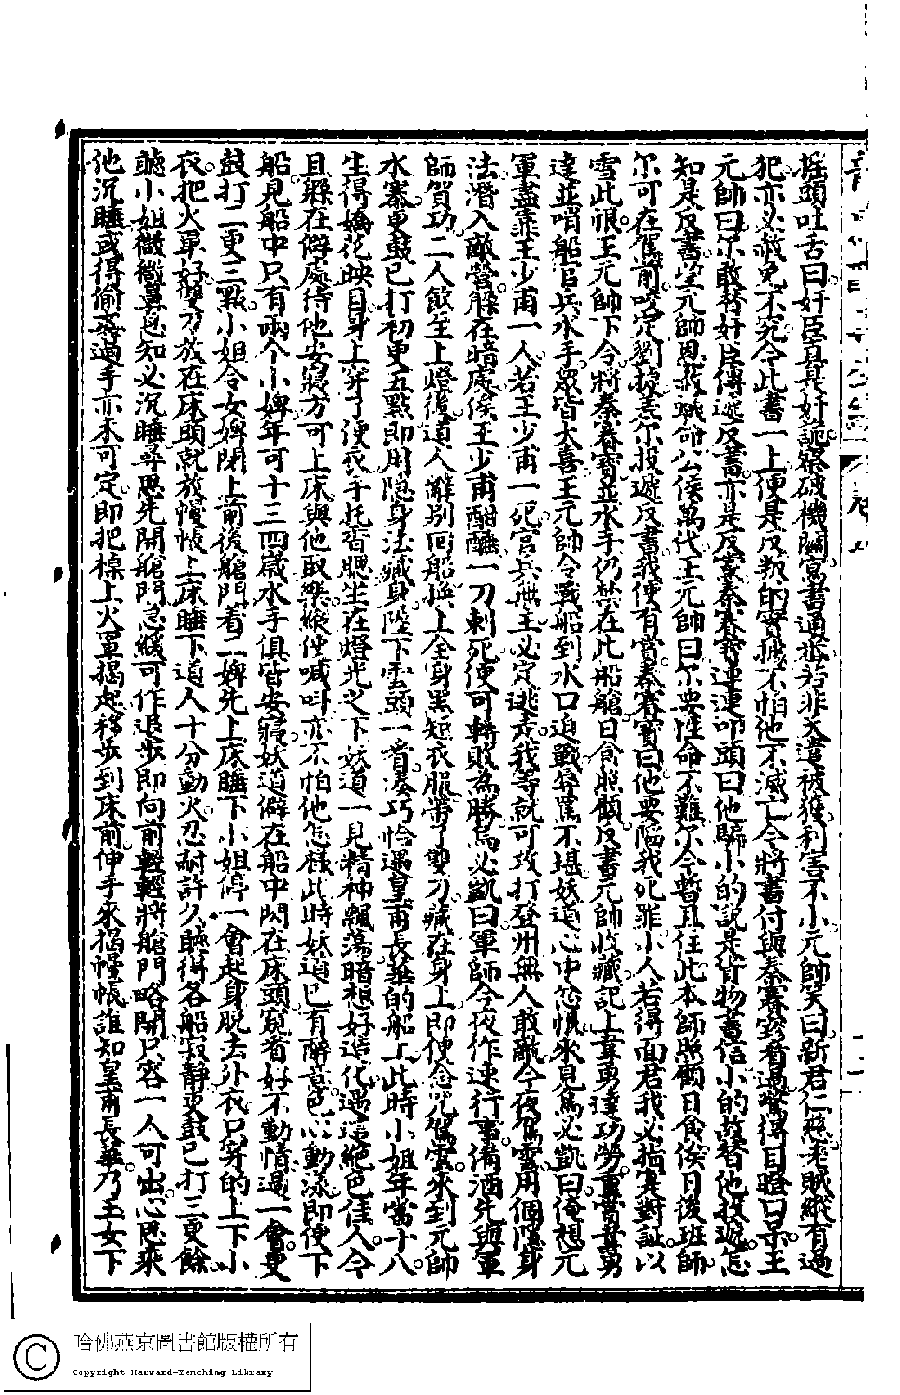 搖頭吐舌曰奸臣真是奸詭察破機關寫書通丞若非天遣被獲利害不小元帥笑曰新君仁慈老賊縱有過
犯亦必赦免不究今此書一上便是反叛的實據不怕他不滅亡今將書付與秦賽寶看過驚得目瞪口呆王
元帥曰尔敢替奸臣傳遞反書亦是反叛秦賽寶連連叩頭曰他騙小的說是貨物書信小的故替他投遞怎
知是反書望元帥恩赦職命公侯萬代王元帥曰尔要性命不難尔今暫且住此本師照顧日食候日後班師
尔可在駕前咬定劉捷差尔投遞反書我便有賞秦賽寶曰他要陷我死罪小人若得面君我必指實對証以
雪此恨王元帥下令將秦賽寶並水手仍禁在此船艙日食照顧反書元帥收藏記上韋勇達功勞重賞韋勇
達並哨船官兵水手眾皆大喜王元帥令戰船到水口追戰辱罵不堪妖道心中忿恨來見烏必凱曰俺想元
軍盡靠王少甫一人若王少甫一死官兵無主必定逃走我等就可攻打登州無人敢敵今夜駕雲用個隱身
法潛入敵營躲在暗處俟王少甫酣醺一刀刺死便可轉敗為勝烏必凱曰軍師今夜作速行事備酒先與軍
師賀功二人飲至上燈後道人離別回船換上全身黑短衣服帶了雙刀藏在身上即便念咒駕雲來到元帥
水寨更鼓已打初更五點即用隱身法藏身墜下雲頭一看湊巧恰遇皇甫長華的船上此時小姐年當十八
生得嬌花映目身上穿了便衣手托香腮坐在燈光之下妖道一見精神飄蕩暗想好造化遇這絕色佳人今
且躲在僻處待他安寢方可上床與他取樂縱他喊叫亦不怕他怎樣此時妖道已有醉意色心動漾即便下
船見船中只有兩个小婢年可十三四歲水手俱皆安寢妖道僻在船中閃在床頭窺看好不動情過一會更
鼓打二更三點小姐令女婢閉上前後艙門着二婢先上床睡下小姐停一會起身脫去外衣只穿的上下小
衣把火罩好雙刀放在床頭就放幔帳上床睡下道人十分動火忍耐許久聽得各船寂靜更鼓已打三更餘
聽小姐微微鼻息知必沉睡尋思先開艙門急緩可作退步即向前輕輕將艙門略開只容一人可出心思乘
他沉睡或得偷香過手亦未可定即把棹上火罩揭起移步到床前伸手來揭幔帳誰知皇甫長華乃王女下
哈佛燕京圖書館版權所有
Copyright Harvard-Yenching Library